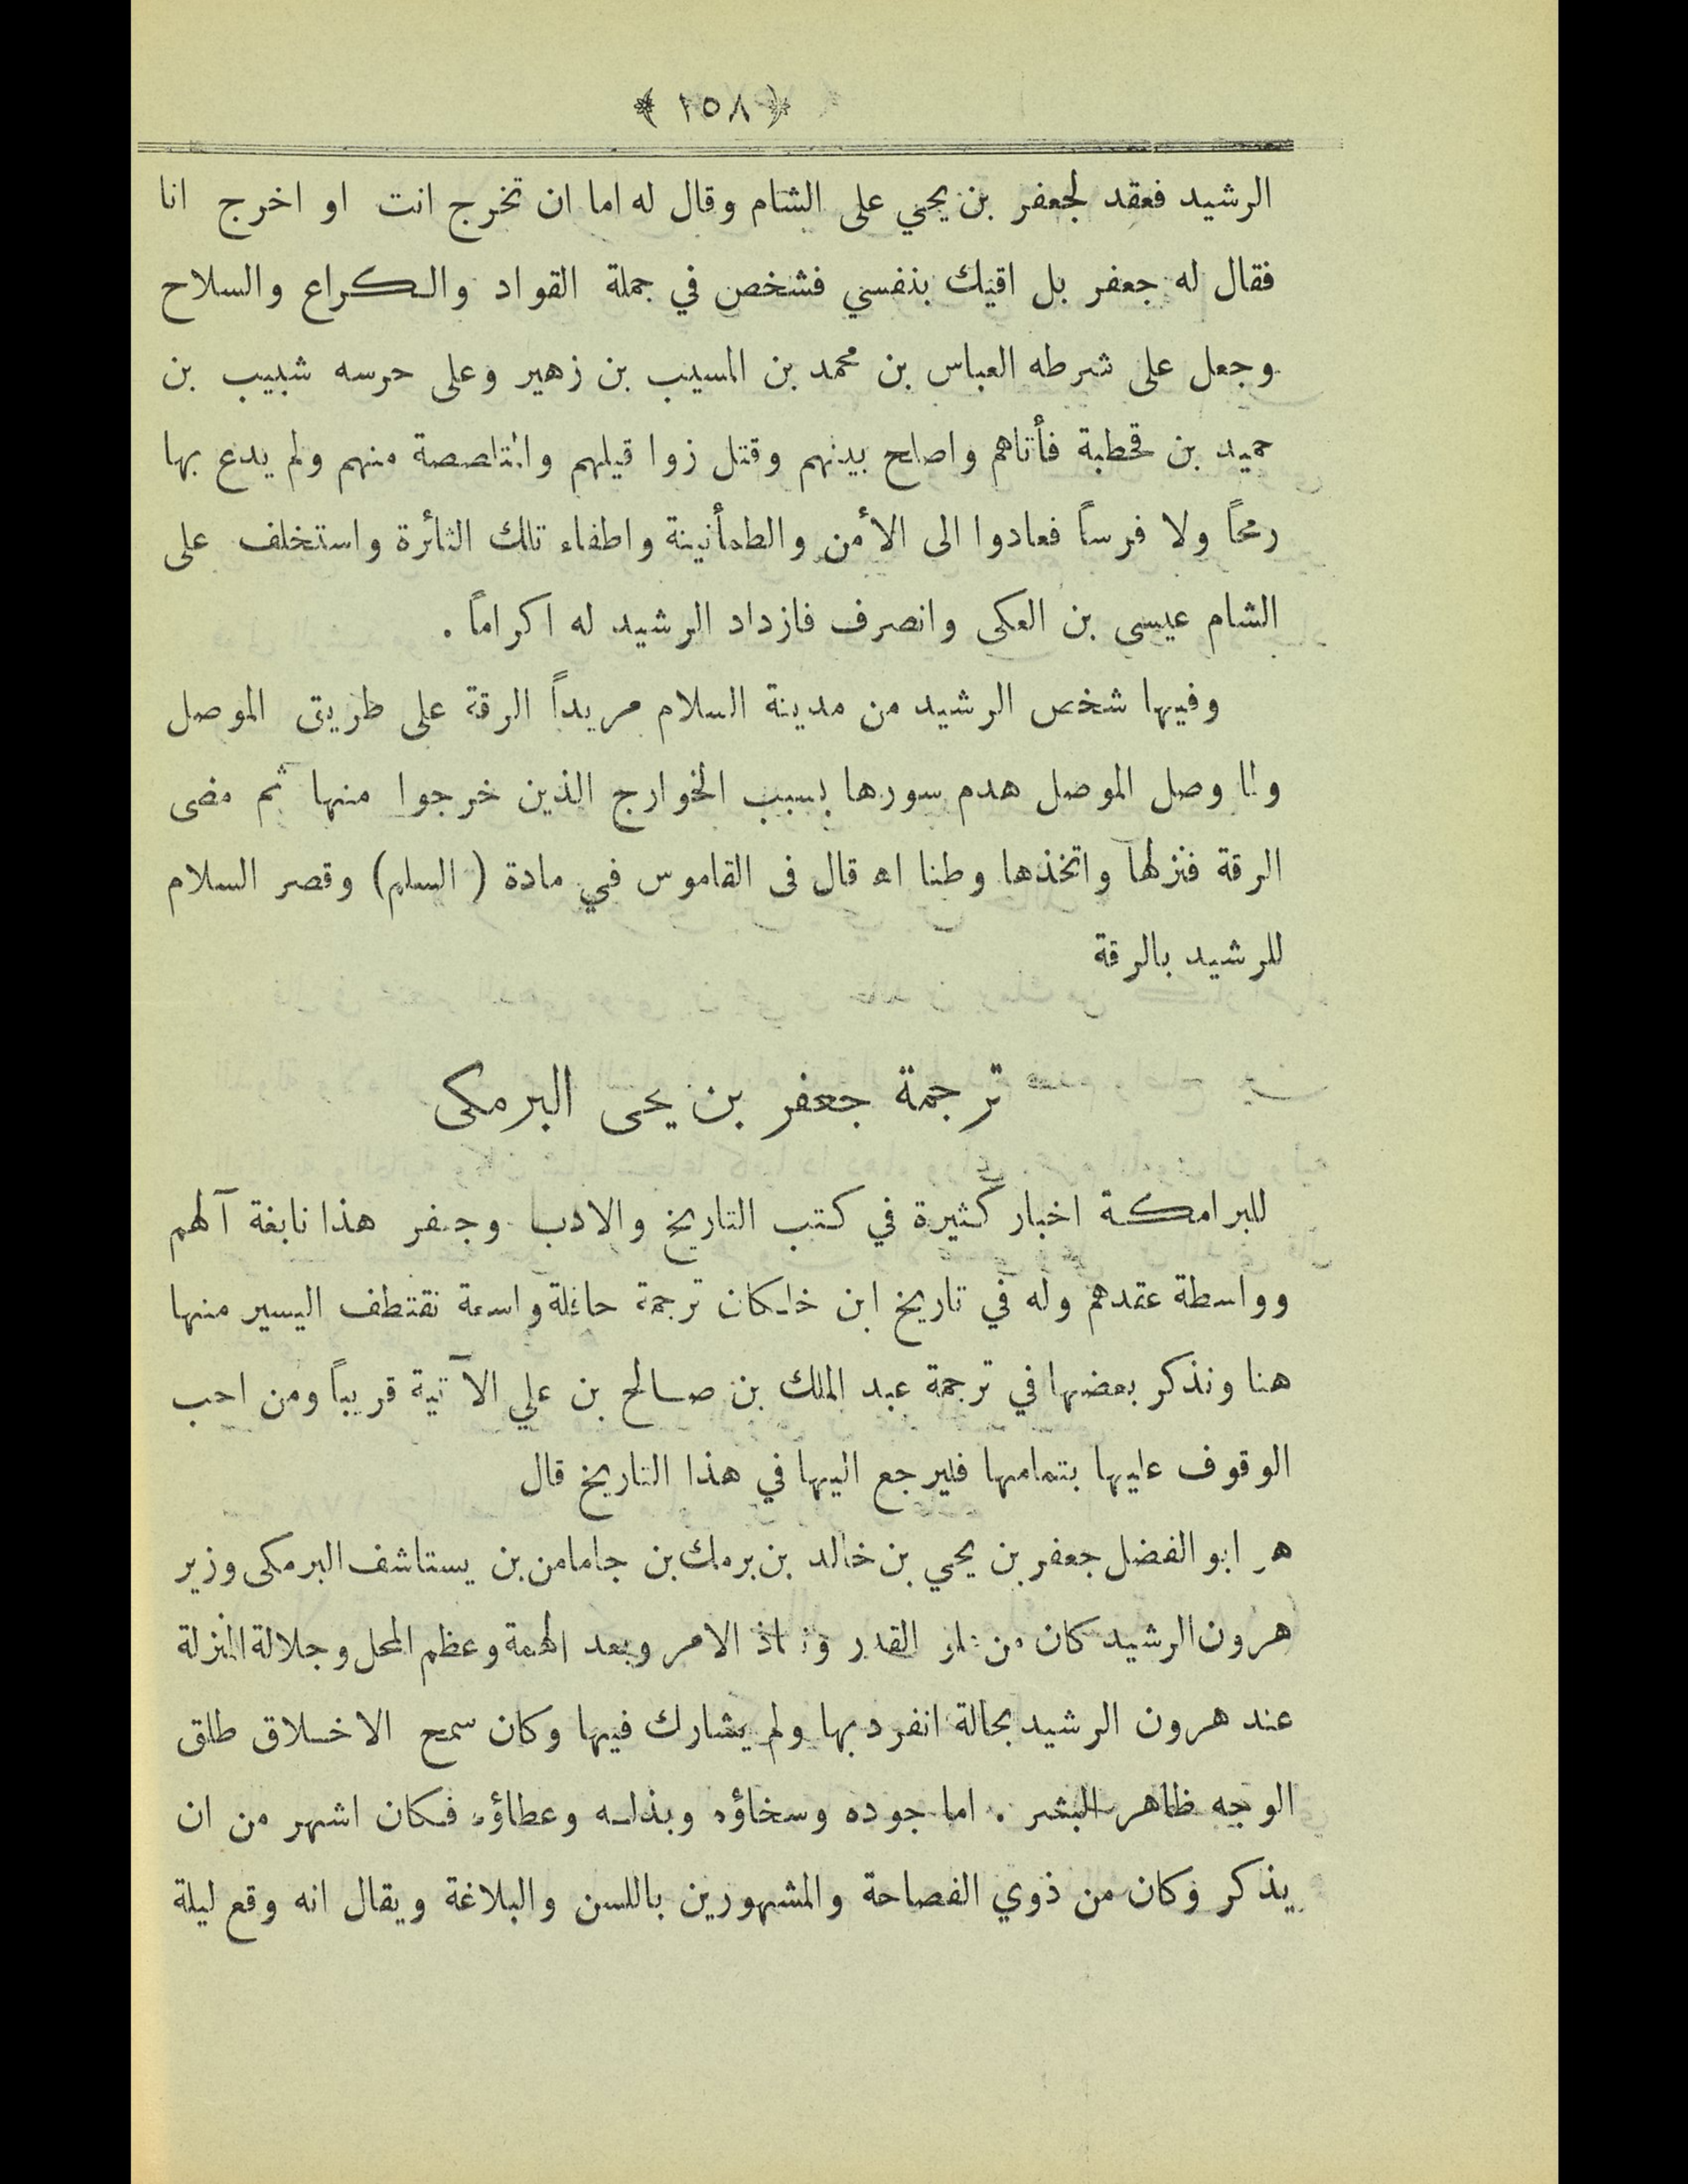 ﴿ ١٥٨ ﴾
الرشيد فعقد لجعفر بن يحيي على الشام وقال له اما ان تخرج انت او اخرج انا
فقال له جعفر بل اقيك بنفسي فشخص في جملة القواد والكراع والسلاح
وجعل على شرطه العباس بن محمد بن المسيب بن زهير وعلى حرسه شبيب بن
حميد بن قحطبة فأتاهم واصلح بينهم وقتل زوا قيلهم والمتلصصة منهم ولم يدع بها
رمحاً ولا فرساً فعادوا الى الأمن والطمأنينة واطفاء تلك الثائرة واستخلف على
الشام عيسى بن العكى وانصرف فازداد الرشيد له اكراماً .
وفيها شخص الرشيد من مدينة السلام مريداً الرقة على طريق الموصل
ولما وصل الموصل هدم سورها بسبب الخوارج الذين خرجوا منها ثم مضى
الرقة فنزلها واتخذها وطنا اه قال فى القاموس في مادة ( السلم) وقصر السلام
للرشيد بالرقة
ترجمة جعفر بن يحى البرمكى
للبرامكة اخبار كثيرة في كتب التاريخ والادب وجعفر هذا نابغة آلهم
وواسطة عقدهم وله في تاريخ ابن خلكان ترجمة حافلة واسعة نقتطف اليسير منها
هنا ونذكر بعضها في ترجمة عبد الملك بن صالح بن علي الآتية قريباً ومن احب
الوقوف عليها بتمامها فليرجع اليها في هذا التاريخ قال
هو ابو الفضل جعفر بن يحي بن خالد بن برمك بن جامامن بن يستاشف البرمكى وزير
هرون الرشيد كان من علو القدر ونفاذ الامر وبعد الهمة وعظم المحل وجلالة المنزلة
عند هرون الرشيد بحالة انفرد بها ولم يشارك فيها وكان سمح الاخلاق طلق
الوجه ظاهر البشر . اما جوده وسخاؤه وبذله وعطاؤه فكان اشهر من ان
يذكر وكان من ذوي الفصاحة والمشهورين باللسن والبلاغة ويقال انه وقع ليلة